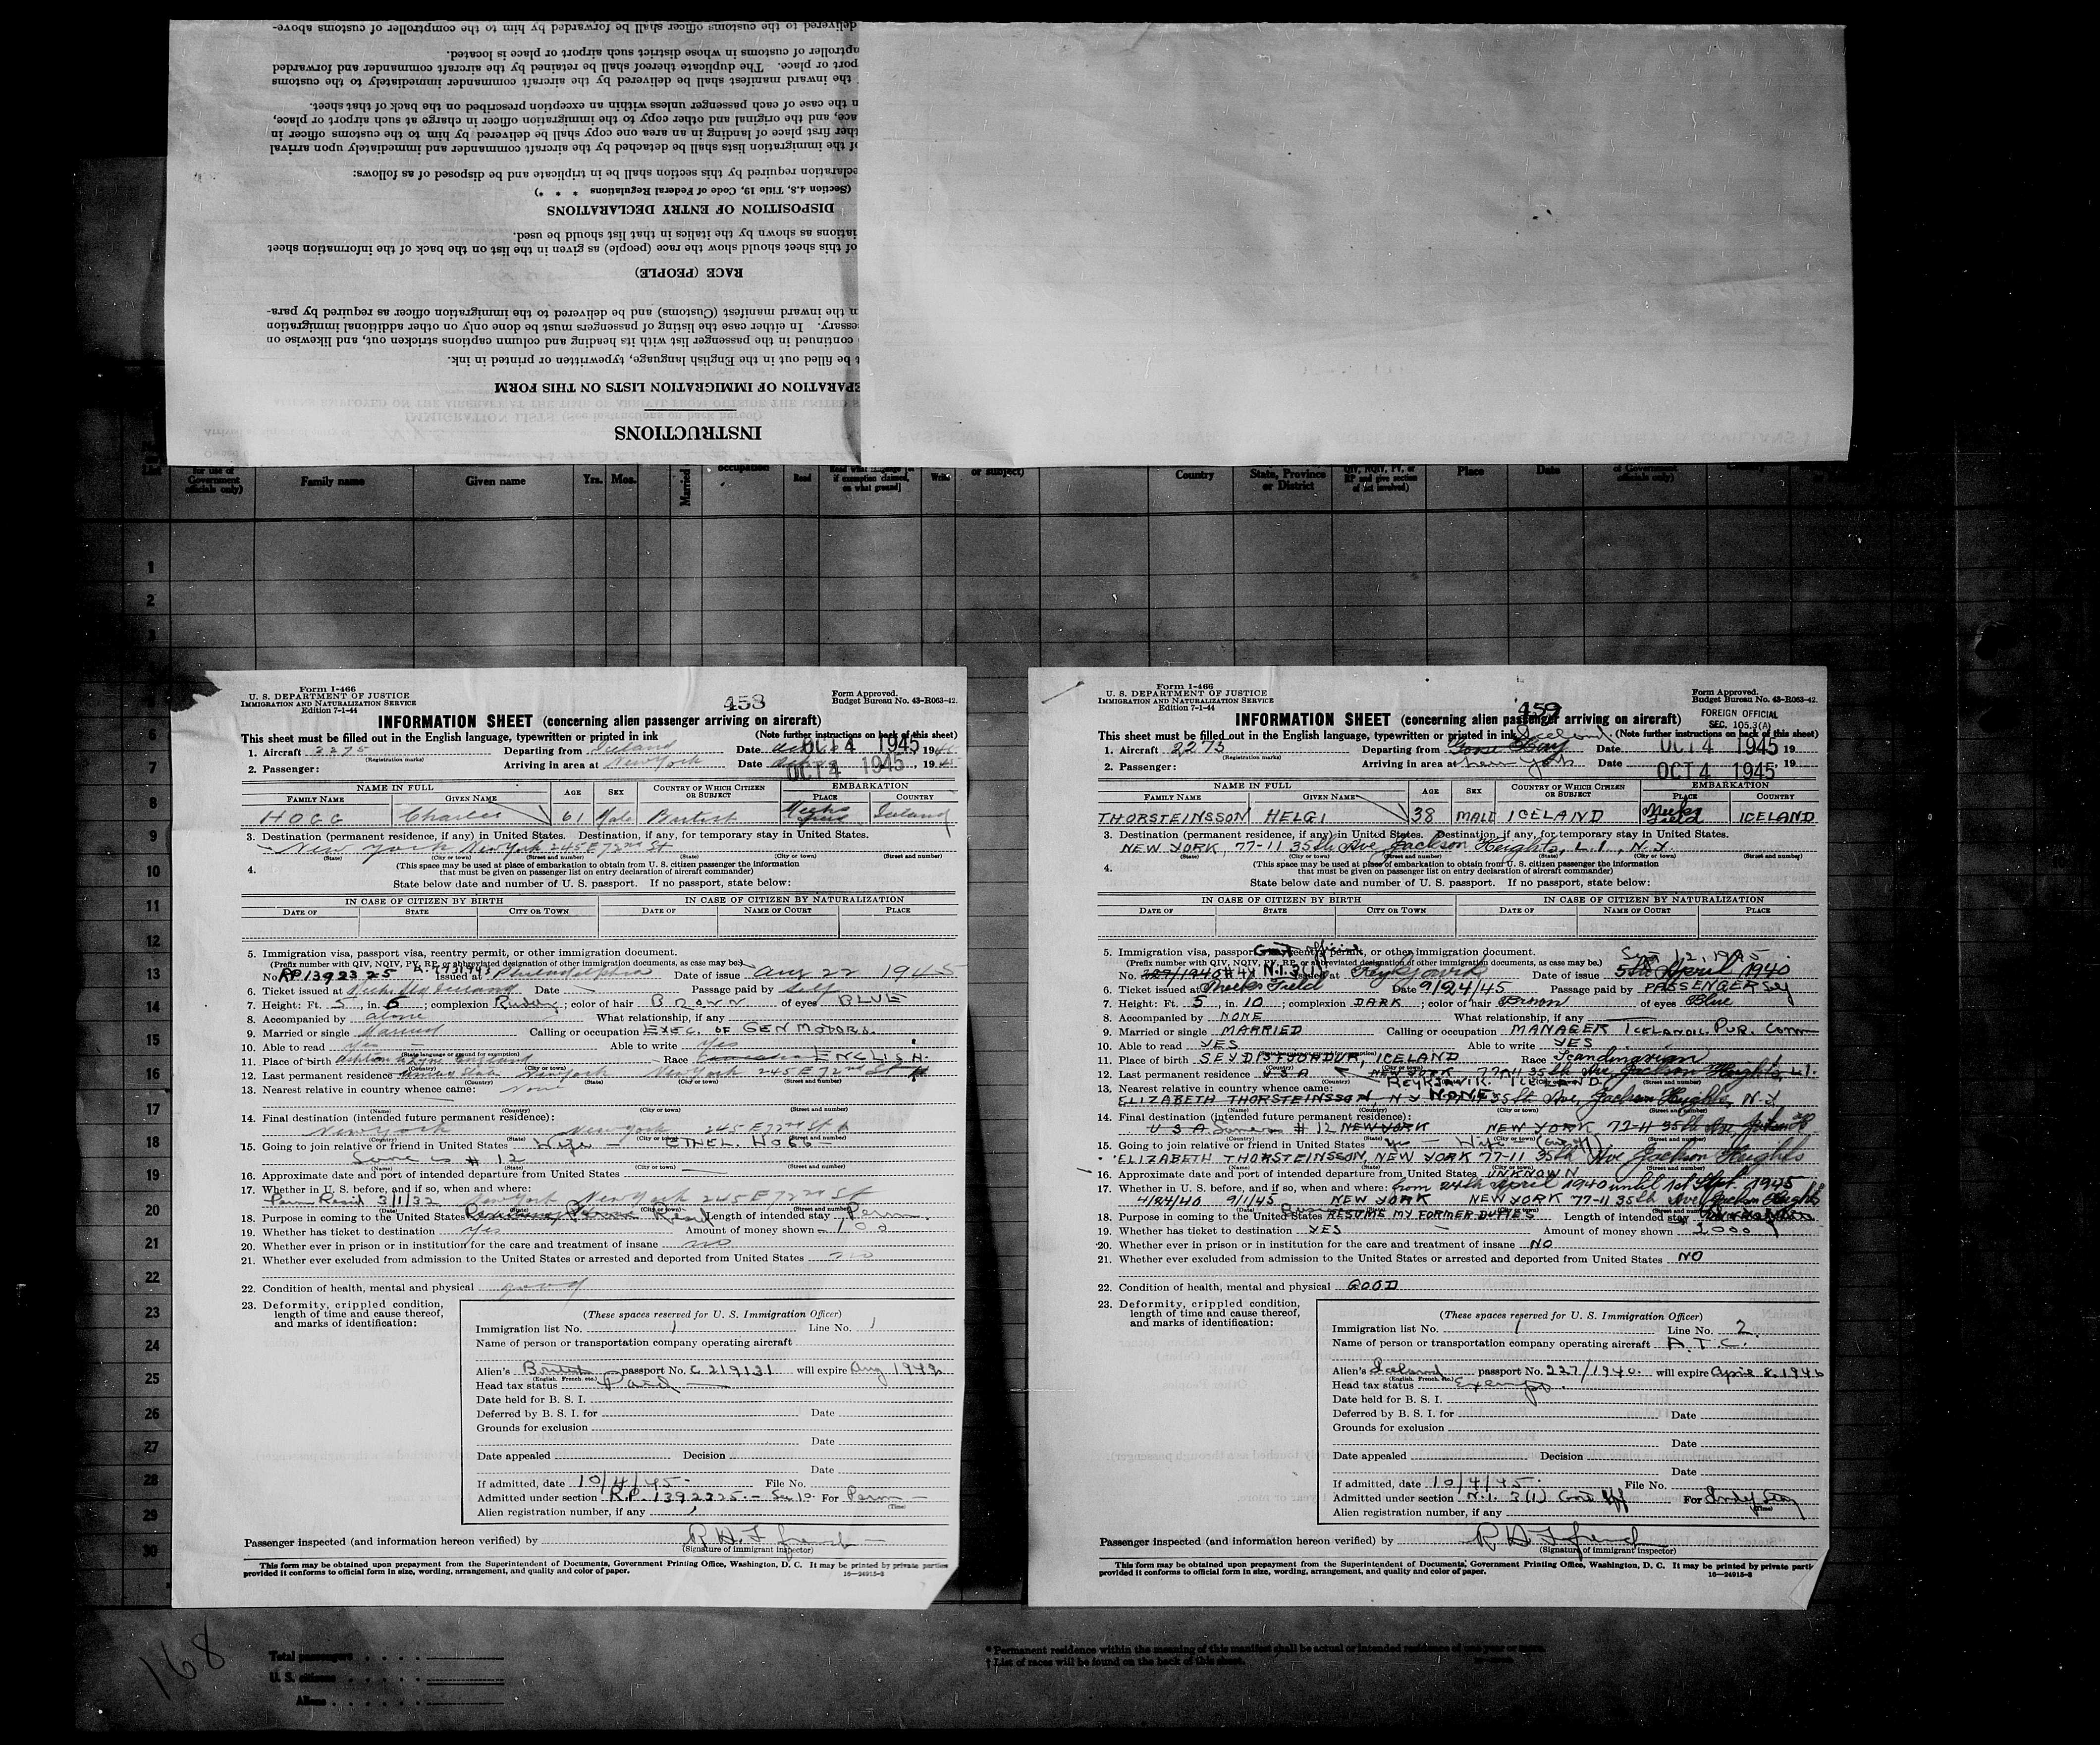 delivered to the customs officer shall be forwarded by him to the comptroller of customs above-
ptroller of customs in whose district such airport or place is located.
port or place. The duplicate thereof shall be retained by the aircraft commander and forwarded
the inward manifest shall be delivered by the aircraft commander immediately to the customs
n the case of each passenger unless within an exception prescribed on the back of that sheet.
ace, and the original and other copy to the immigration officer in charge at such airport or place,
ther first place of landing in an area one copy shall be delivered by him to the customs officer in
of the immigration lists shall be detached by the aircraft commander and immediately upon arrival
claration required by this section shall be in triplicate and be disposed of as follows:
(Section 4.8, Title 19, Code of Federal Regulations * * *)
DISPOSITION OF ENTRY DECLARATIONS
iations as shown by the italics in that list should be used.
of this sheet should show the race (people) as given in the list on the back of the information sheet
RACE (PEOPLE)
n the inward manifest (Customs) and be delivered to the immigration officer as required by para-
essary. In either case the listing of passengers must be done only on other additional immigration
continued in the passenger list with its heading and column captions stricken out, and likewise on
t be filled out in the English language, typewritten or printed in ink.
EPARATION OF IMMIGRATION LISTS ON THIS FORM
INSTRUCTIONS
for use of Government officials only) Family name Given name Yrs. Mos. Married occupation Read if exemption claimed, on what ground] Write or subject) Country State, Province or District QIV, NQIV, PV, or RP and give section of act involved) Place Date of Government officials only)
1
2
3
6
7
8
9
10
11
12
13
14
15
16
17
18
19
20
21
22
23
24
25
26
27
28
29
30
Form I-466
U. S. DEPARTMENT OF JUSTICE
IMMIGRATION AND NATURALIZATION SERVICE
Edition 7-1-44
458
Form Approved.
Budget Bureau No. 43-R063-42.
INFORMATION SHEET (concerning alien passenger arriving on aircraft)
This sheet must be filled out in the English language, typewritten or printed in ink (Note further instructions on back of this sheet)
1. Aircraft 2275 Departing from Iceland Date OCT 4 1945 19
(Registration marks)
2. Passenger: Arriving in area at New York Date OCT 4 1945, 19
NAME IN FULL AGE SEX COUNTRY OF WHICH CITIZEN OR SUBJECT EMBARKATION
FAMILY NAME GIVEN NAME PLACE COUNTRY
HOGG Charles 61 Male British Meeks Field Iceland
3. Destination (permanent residence, if any) in United States. Destination, if any, for temporary stay in United States.
New York New York 245 E 72nd St
(State) (City or town) (Street and number) (State) (City or town) (Street and number)
4. (This space may be used at place of embarkation to obtain from U. S. citizen passenger the information
that must be given on passenger list on entry declaration of aircraft commander)
State below date and number of U. S. passport. If no passport, state below:
IN CASE OF CITIZEN BY BIRTH IN CASE OF CITIZEN BY NATURALIZATION
DATE OF STATE CITY OR TOWN DATE OF NAME OF COURT PLACE
5. Immigration visa, passport visa, reentry permit, or other immigration document.
(Prefix number with QIV, NQIV, PV, RP, or abbreviated designation of other immigration documents, as case may be.)
No. RP 1392325 Issued at Philadelphia Date of issue Aug 22 1945
6. Ticket issued at Meeks Fld Iceland Date Passage paid by Self
7. Height: Ft. 5, in. 6; complexion Ruddy; color of hair BROWN of eyes BLUE
8. Accompanied by alone What relationship, if any
9. Married or single Married Calling or occupation EXEC. OF GEN MOTORS.
10. Able to read yes Able to write yes
11. Place of birth England Race ENGLISH.
12. Last permanent residence United States New York New York 245 E 72nd St
(Country) (State) (City or town) (Street and number)
13. Nearest relative in country whence came: None
(Name) (Country) (City or town) (Street and number)
14. Final destination (intended future permanent residence):
New York New York 245 E 72nd St
(Country) (State) (City or town) (Street and number)
15. Going to join relative or friend in United States Wife - ETHEL. HOGG -
Same as # 12
(Name) (State) (City or town) (Street and number)
16. Approximate date and port of intended departure from United States
17. Whether in U. S. before, and if so, when and where:
Perm Resid 3/1/32 New York New York 245 E 72nd St
(Date) (State) (City or town) (Street and number)
18. Purpose in coming to the United States Resid Length of intended stay Perm.
19. Whether has ticket to destination yes Amount of money shown 100
20. Whether ever in prison or in institution for the care and treatment of insane no
21. Whether ever excluded from admission to the United States or arrested and deported from United States no
22. Condition of health, mental and physical good
23. Deformity, crippled condition, length of time and cause thereof, and marks of identification:
(These spaces reserved for U. S. Immigration Officer)
Immigration list No. 1 Line No. 1
Name of person or transportation company operating aircraft
Alien's British passport No. C 219131 will expire Aug 1949
(English, French, etc.)
Head tax status Paid
Date held for B. S. I.
Deferred by B. S. I. for Date
Grounds for exclusion
Date
Date appealed Decision
Date
If admitted, date 10/4/45- File No.
Admitted under section R.P. 1392325.- Sec 10. For Perm -
(Time)
Alien registration number, if any
Passenger inspected (and information hereon verified) by
(Signature of immigrant inspector)
This form may be obtained upon prepayment from the Superintendent of Documents, Government Printing Office, Washington, D. C. It may be printed by private parties
provided it conforms to official form in size, wording, arrangement, and quality and color of paper.
16—24915-2
Form I-466
U. S. DEPARTMENT OF JUSTICE
IMMIGRATION AND NATURALIZATION SERVICE
Edition 7-1-44
459
Form Approved.
Budget Bureau No. 43-R063-42.
FOREIGN OFFICIAL
SEC. 105.3(A)
INFORMATION SHEET (concerning alien passenger arriving on aircraft)
This sheet must be filled out in the English language, typewritten or printed in ink (Note further instructions on back of this sheet)
1. Aircraft 2273 Departing from Goose Bay Iceland Date OCT 4 1945 19
(Registration marks)
2. Passenger: Arriving in area at New York Date OCT 4 1945, 19
NAME IN FULL AGE SEX COUNTRY OF WHICH CITIZEN OR SUBJECT EMBARKATION
FAMILY NAME GIVEN NAME PLACE COUNTRY
THORSTEINSSON HELGI 38 MALE ICELAND Meeks Field ICELAND
3. Destination (permanent residence, if any) in United States. Destination, if any, for temporary stay in United States.
NEW YORK, 77-11 35th Ave Jackson Heights, L.I., N.Y.
(State) (City or town) (Street and number) (State) (City or town) (Street and number)
4. (This space may be used at place of embarkation to obtain from U. S. citizen passenger the information
that must be given on passenger list on entry declaration of aircraft commander)
State below date and number of U. S. passport. If no passport, state below:
IN CASE OF CITIZEN BY BIRTH IN CASE OF CITIZEN BY NATURALIZATION
DATE OF STATE CITY OR TOWN DATE OF NAME OF COURT PLACE
5. Immigration visa, passport visa, reentry permit, or other immigration document. Sept 12, 1945
(Prefix number with QIV, NQIV, PV, RP, or abbreviated designation of other immigration documents, as case may be.)
No. 227/1940 #41 N.I. 3(1) Issued at Reykjavik Date of issue 5th April 1940
6. Ticket issued at Meeks Field Date 9/24/45 Passage paid by PASSENGER
7. Height: Ft. 5, in. 10; complexion DARK; color of hair Brown of eyes Blue
8. Accompanied by NONE What relationship, if any
9. Married or single MARRIED Calling or occupation MANAGER ICELANDIC PUR. Comm
10. Able to read YES Able to write YES
11. Place of birth SEYDISFJORDUR, ICELAND Race Scandinavian
12. Last permanent residence U.S.A NEW YORK 77-11 35th Ave, Jackson Heights, L.I.
REYKJAVIK. ICELAND
13. Nearest relative in country whence came:
ELIZABETH THORSTEINSSON, N.Y NONE 35th Ave, Jackson Heights, N.Y
(Name) (Country) (City or town) (Street and number)
14. Final destination (intended future permanent residence):
U.S.A Same as # 12 NEW YORK NEW YORK 77-11 35th Ave, Jackson
(Country) (State) (City or town) (Street and number)
15. Going to join relative or friend in United States yes - Wife
ELIZABETH THORSTEINSSON, NEW YORK 77-11 35th Ave Jackson Heights
(Name) (State) (City or town) (Street and number)
16. Approximate date and port of intended departure from United States UNKNOWN
17. Whether in U. S. before, and if so, when and where: from 24th April 1940 until 1st Sept. 1945
4/24/40 9/1/45 NEW YORK NEW YORK 77-11 35th Ave Jackson Heights
(Date) (State) (City or town) (Street and number)
18. Purpose in coming to the United States Business RESUME MY FORMER DUTIES Length of intended stay
19. Whether has ticket to destination YES Amount of money shown 2000
20. Whether ever in prison or in institution for the care and treatment of insane NO
21. Whether ever excluded from admission to the United States or arrested and deported from United States NO
22. Condition of health, mental and physical GOOD
23. Deformity, crippled condition, length of time and cause thereof, and marks of identification:
(These spaces reserved for U. S. Immigration Officer)
Immigration list No. 1 Line No. 2.
Name of person or transportation company operating aircraft A.T.C.
Alien's Iceland passport No. 227/1940. will expire April 8. 1946
(English, French, etc.)
Head tax status Exempt.
Date held for B. S. I.
Deferred by B. S. I. for Date
Grounds for exclusion
Date
Date appealed Decision
Date
If admitted, date 10/4/45. File No.
Admitted under section N.I. 3(1) Govt Off For
(Time)
Alien registration number, if any
Passenger inspected (and information hereon verified) by
(Signature of immigrant inspector)
This form may be obtained upon prepayment from the Superintendent of Documents, Government Printing Office, Washington, D. C. It may be printed by private parti
provided it conforms to official form in size, wording, arrangement, and quality and color of paper.
16—24915-2
168
Total passengers
U. S. citizens
Aliens
* Permanent residence within the meaning of this manifest shall be actual or intended residence of one year or more.
† List of races will be found on the back of this sheet.